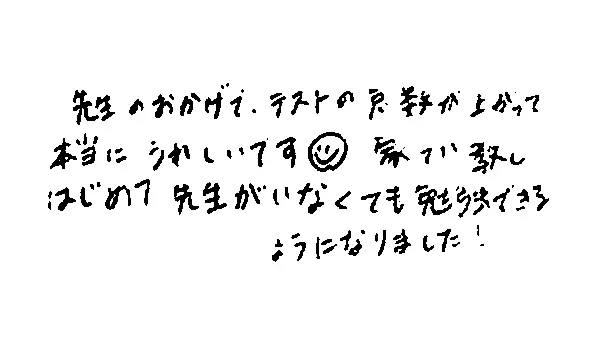 先生のおかげで、テストの点数が上がって
本当にうれしいです☺ 家で
はじめて 先生がいなくても勉強できる
ようになりました!